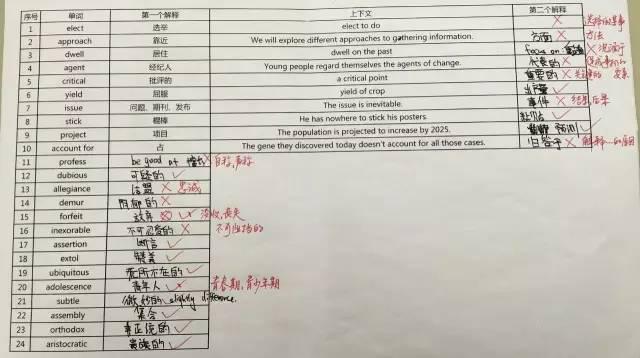 序号 单词 第一个解释 上下文 第二个解释
1 elect 选举 elect to do × 选择做某事
2 approach 靠近 We will explore different approaches to gathering information. 方面 × 方法
3 dwell 居住 dwell on the past focus on ×
4 agent 经纪人 Young people regard themselves the agents of change. 代表的 ×
5 critical 批评的 a critical point 重要的 × 关键的
6 yield 屈服 yield of crop 出产量 ✓
7 issue 问题、期刊、发布 The issue is inevitable. 事件 × 结果,后果
8 stick 棍棒 He has nowhere to stick his posters. 粘贴 ✓
9 project 项目 The population is projected to increase by 2025. 预测 ✓
10 account for 占 The gene they discovered today doesn't account for all those cases. 归咎于 × 解释…的原因
11 profess be good at 擅长 × 自称,声称
12 dubious 可疑的 ✓
13 allegiance 结盟 × 忠诚
14 demur 阴郁的 ×
15 forfeit 放弃 ✓ 没收,丧失
16 inexorable 不可忍受的 × 不可阻挡的
17 assertion 断言 ✓
18 extol 赞美 ✓
19 ubiquitous 无所不在的 ✓
20 adolescence 青年人 × 青春期,青少年期
21 subtle 微妙的 slightly difference.
22 assembly 集合 ✓
23 orthodox 正统的 ✓
24 aristocratic 贵族的 ✓